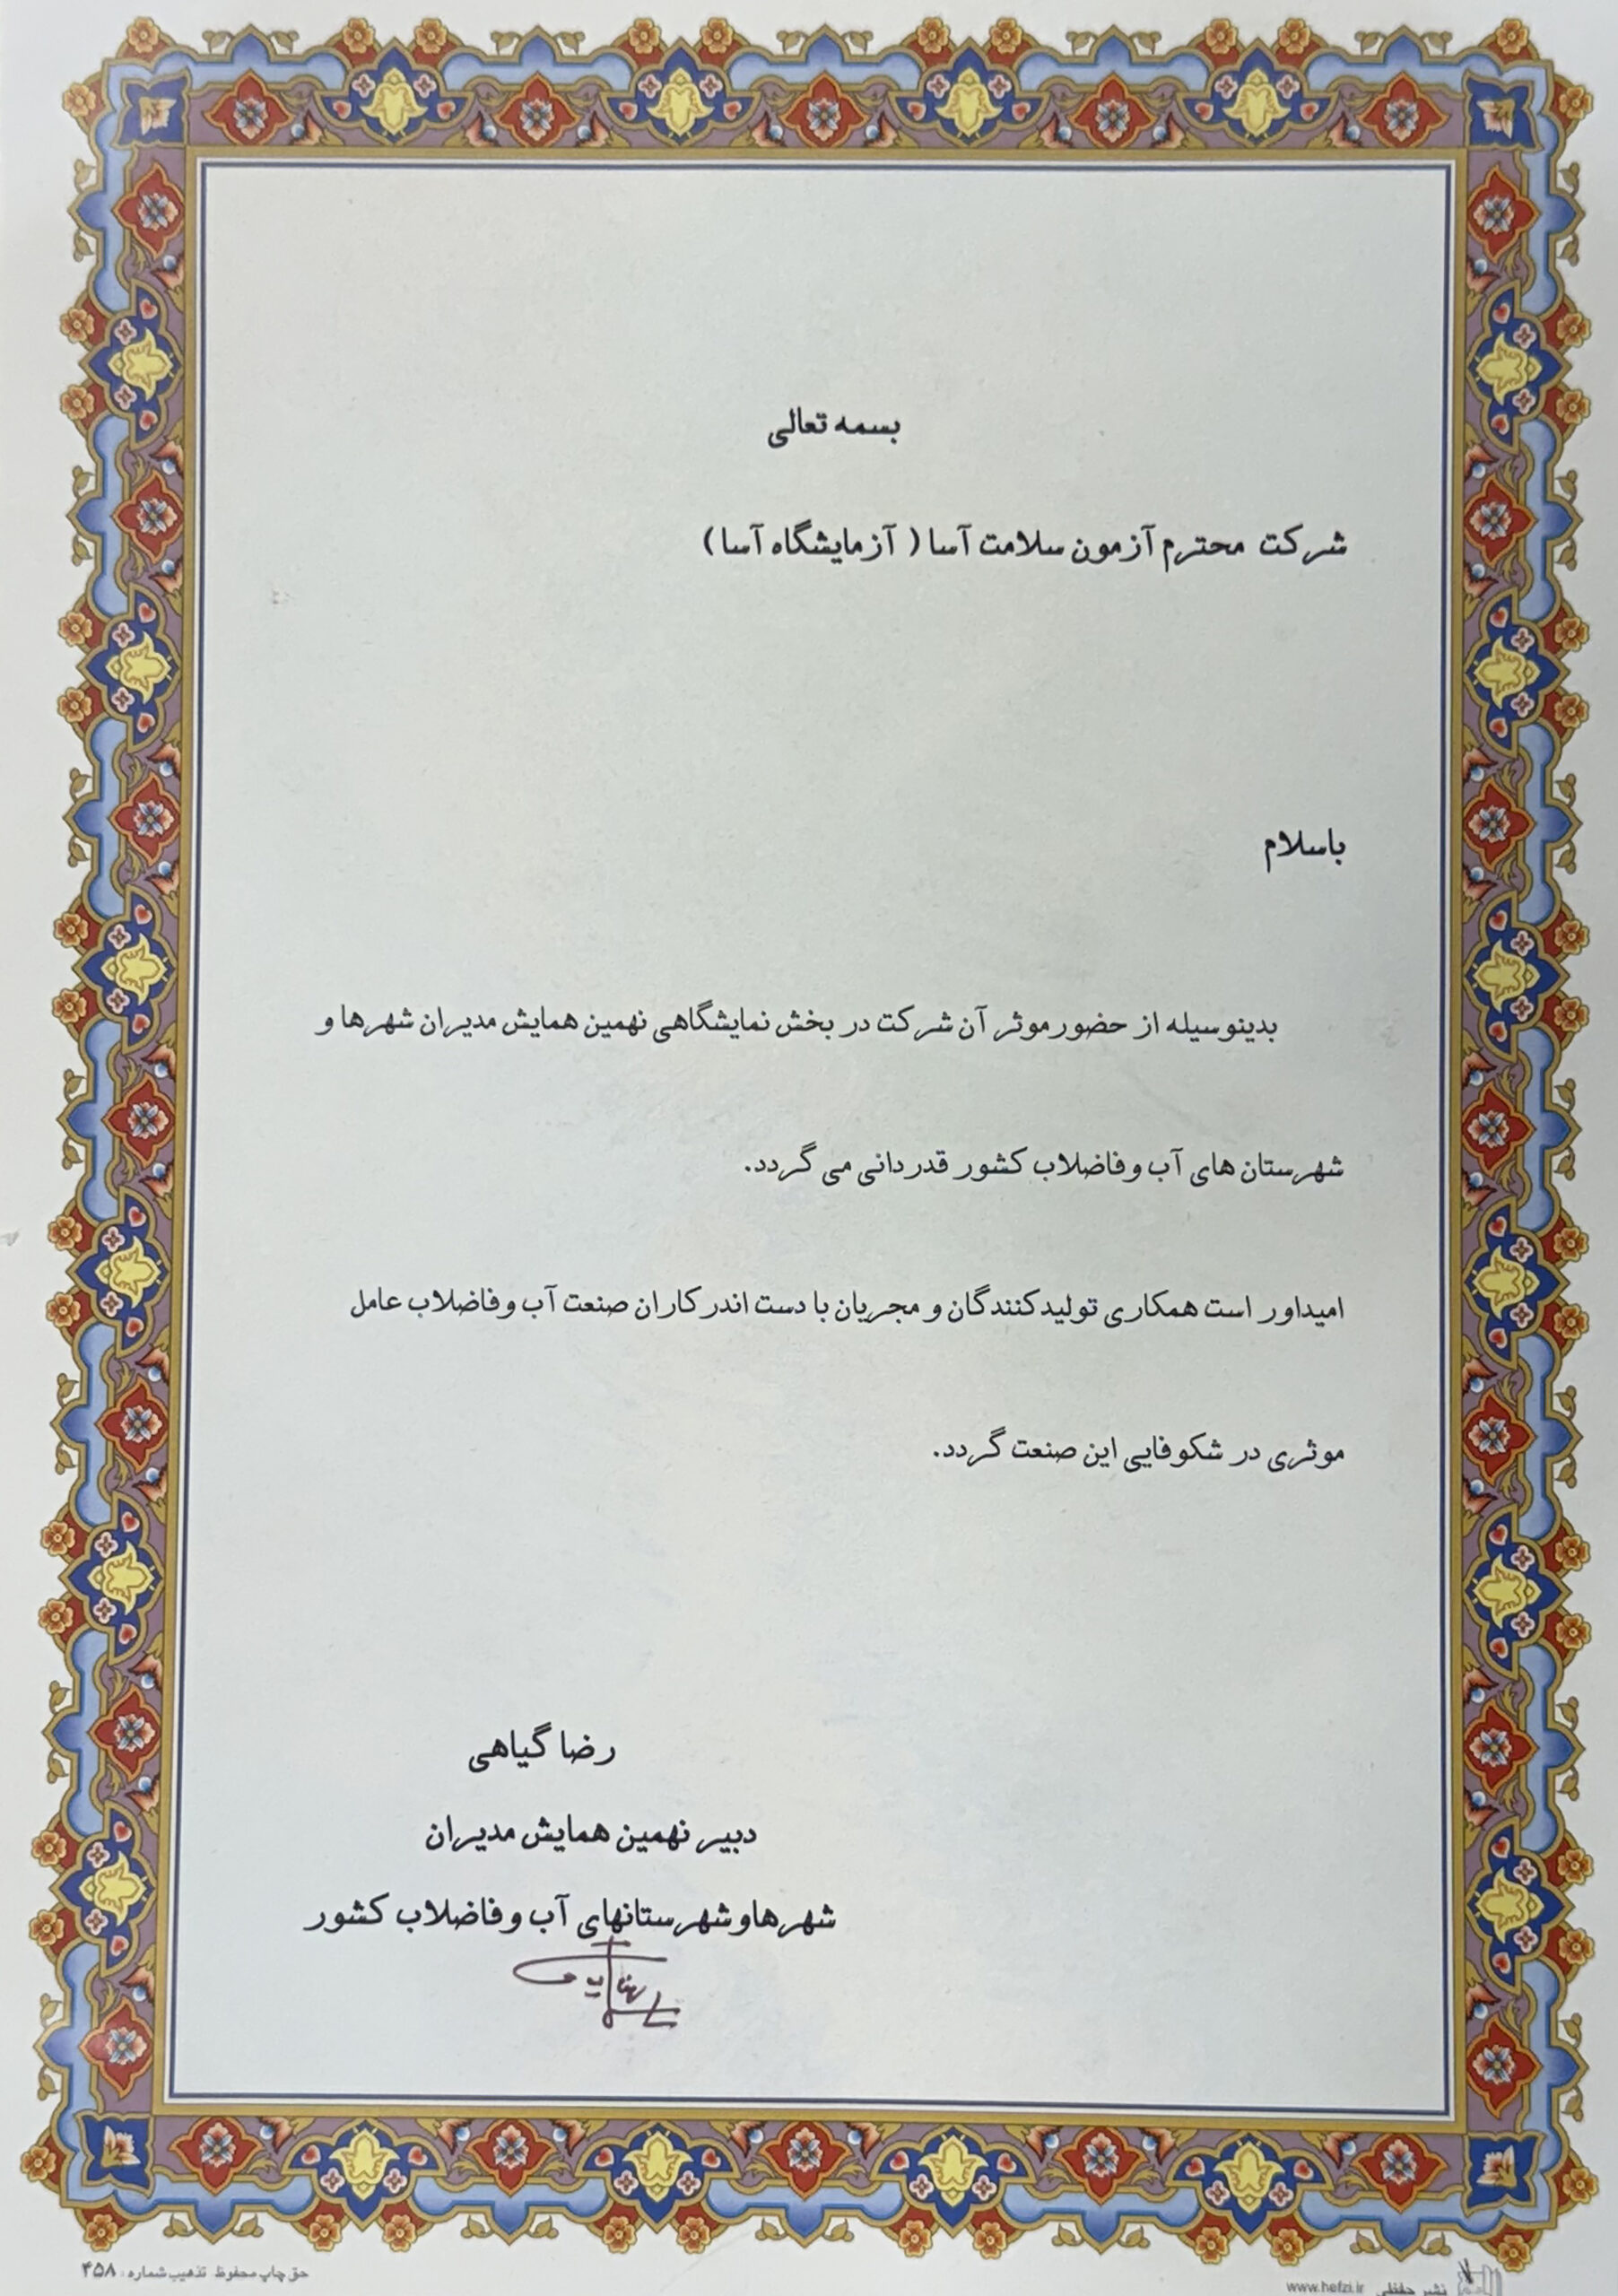 بسمه تعالی
شرکت محترم آزمون سلامت آسا ( آزمایشگاه آسا)
باسلام
بدینوسیله از حضورموثر آن شرکت در بخش نمایشگاهی نهمین همایش مدیران شهرها و
شهرستان های آب وفاضلاب کشور قدردانی می گردد.
امیداور است همکاری تولیدکنندگان و مجریان با دست اندرکاران صنعت آب وفاضلاب عامل
موثری در شکوفایی این صنعت گردد.
رضا گیاهی
دبیر نهمین همایش مدیران
شهرهاوشهرستانهای آب وفاضلاب کشور
حق چاپ محفوظ تذهیب شماره: ۴۵۸
نشر حفظی www.hefzi.ir